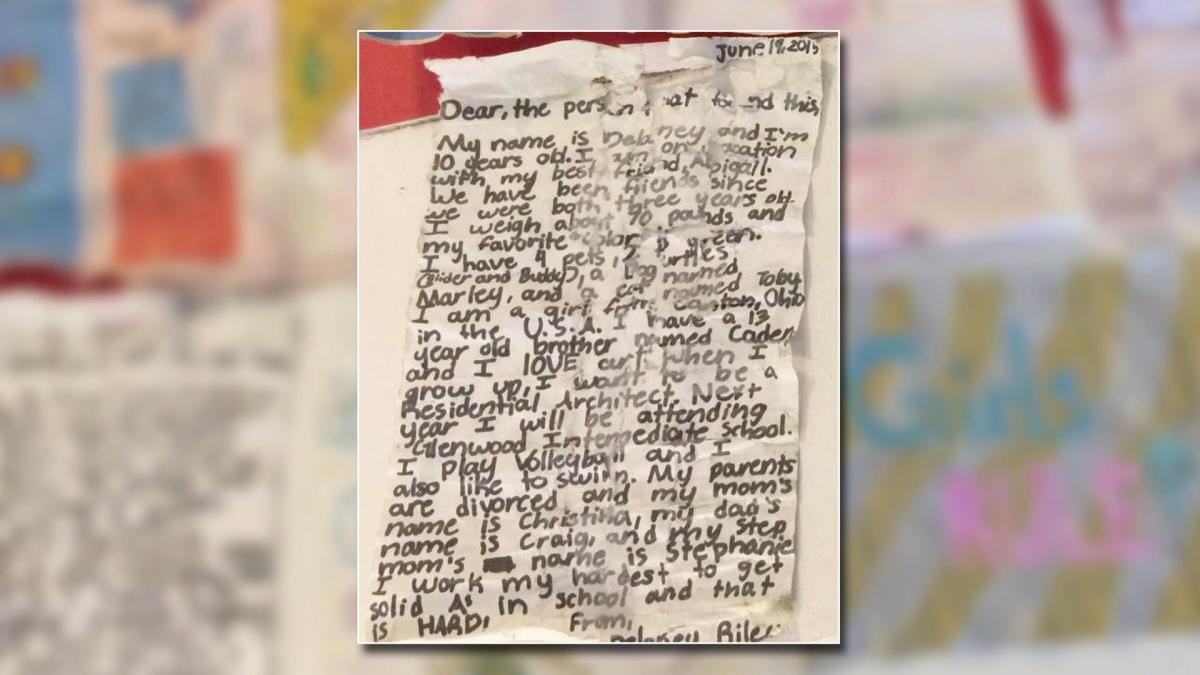 June 19, 2015
Dear, the person that found this,
My name is Delaney and I'm
10 years old. I am on vacation
with my best friend, Abigail.
We have been friends since
we were both three years old.
I weigh about 70 pounds and
my favorite color is green.
I have 4 pets, 2 turtles
and Buddy), a Dog named
Marley, and a cat named Toby
I am a girl from Canton, Ohio
in the U.S.A. I have a 13
year old brother named Caden
and I lOVE art. When I
grow up, I want to be a
Residential Architect. Next
year I will be attending
Glenwood Intermediate School.
I play Volleyball and I
also like to swim. My parents
are divorced and my mom's
name is Christina, my dad's
name is Craig, and my step
mom's name is Stephanie
I work my hardest to get
solid A's in school and that
is HARD! From,
Delaney
Girls
RULE